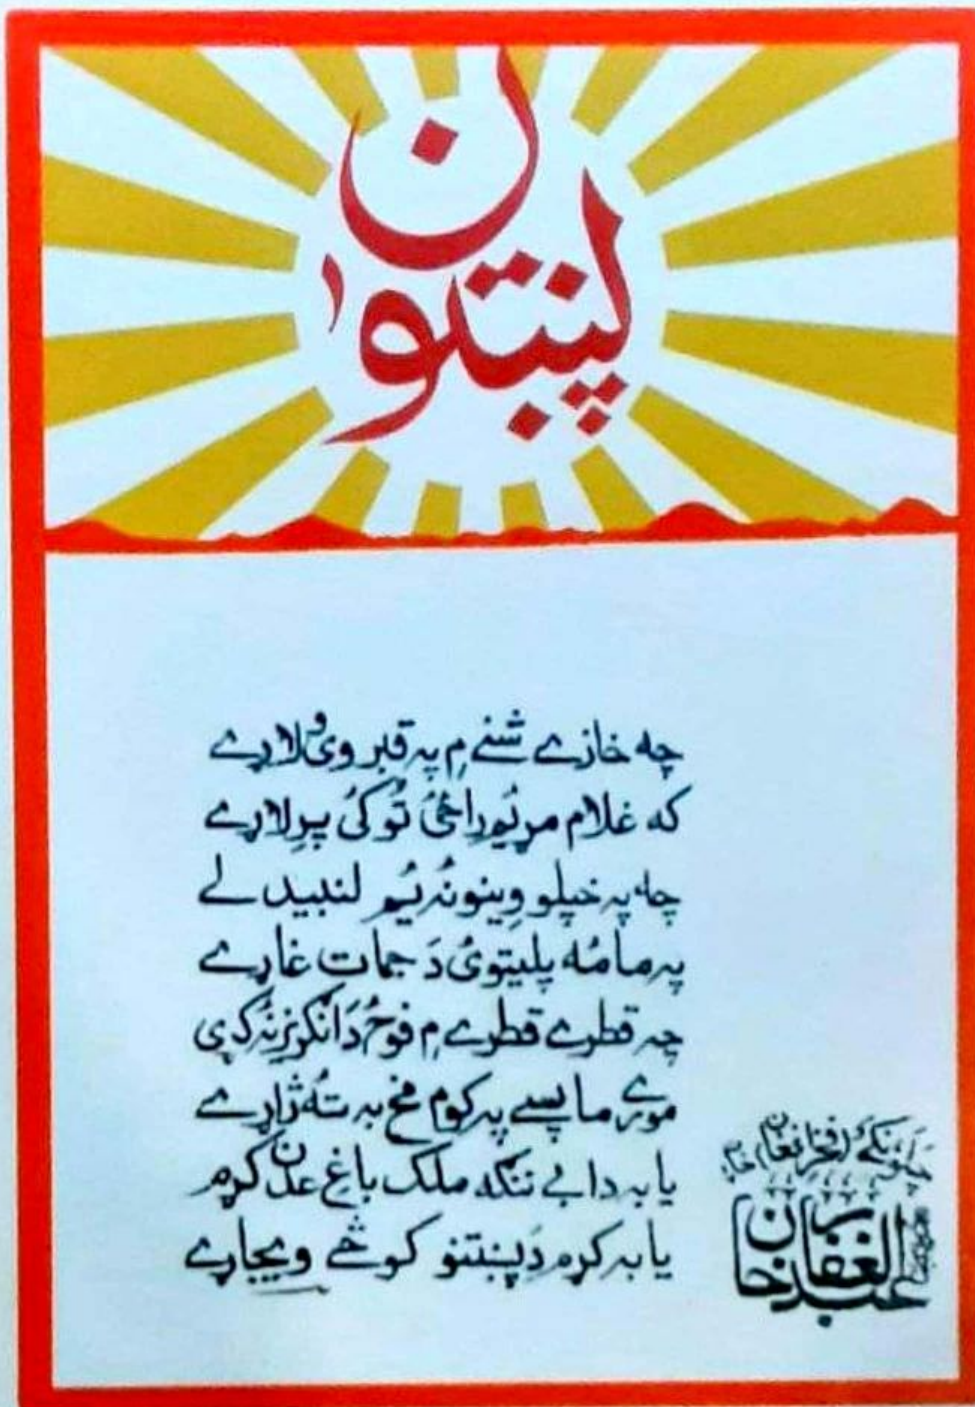 پښتون
چه خازے شنے مِ په قبر وی ولاړے
که غلام مړ یُم راځیٔ تُوکیٔ پرِ لاړے
چه په خپلو وِینو نُه یُم لنبیدلے
په ما مُه پلیتویٔ دَ جمات غاړے
چه قطرے قطرے مِ فوځُ دَ انګریز نُه کړی
مورے ما پسے په کوم مخ به تُه ژاړے
یا به دا بے ننګه ملک باغِ عدن کړم
یا به کړم دَ پښتنو کوڅے ویجاړے
چلوونکے (فخر افغان) خان
عبد الغفار خان